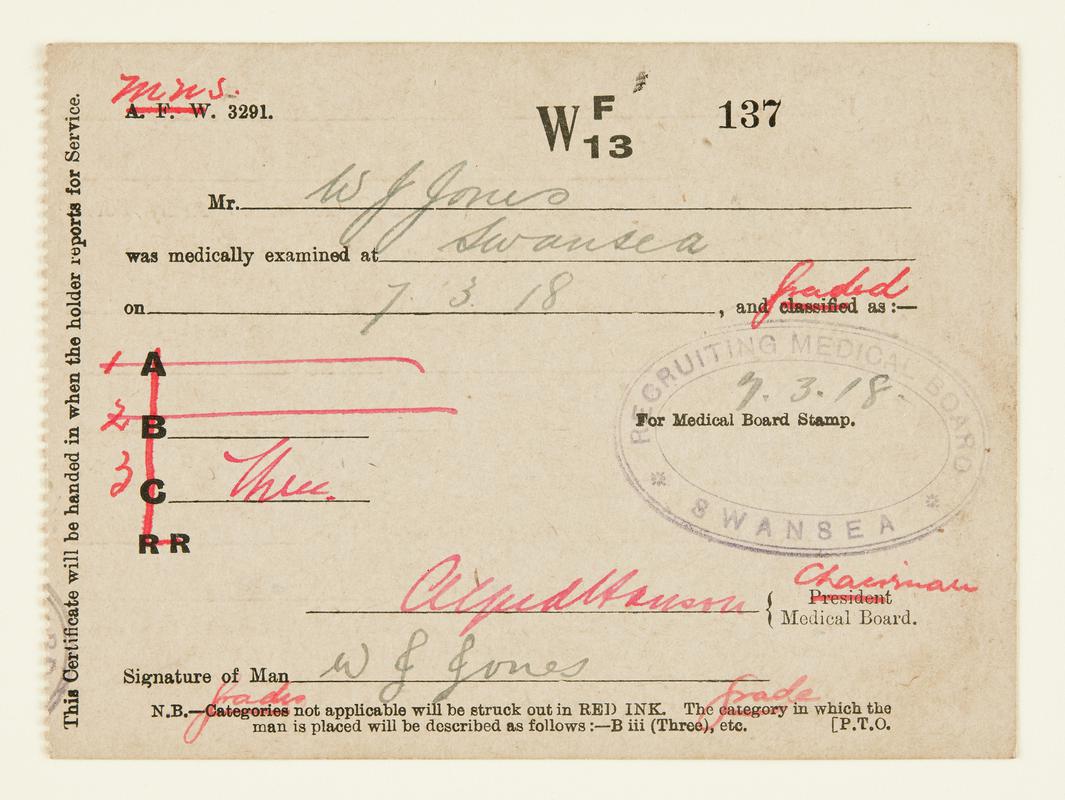 This Certificate will be handed in when the holder reports for Service.
M.N.S.
A. F. W. 3291.
W F 13
137
Mr. W J Jones
was medically examined at Swansea
graded
on 7. 3. 18, and classified as :—
1 A
2 B
3 C Three.
R R
RECRUITING MEDICAL BOARD
7.3.18.
For Medical Board Stamp.
SWANSEA
Chairman
Alfred Hanson { President
Medical Board.
Signature of Man W J Jones
grades grade
N.B.—Categories not applicable will be struck out in RED INK. The category in which the
man is placed will be described as follows :—B iii (Three), etc. [P.T.O.